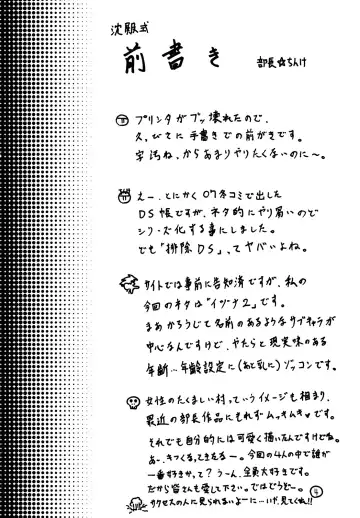 沈服式
前書き
部長☆ちんけ
プリンタがブッ壊れたので、
久々に手書きでの前がきです。
字汚ね、からあまりやりたくないのに〜。
えー、とにかく07冬コミで出した
DS帳ですが、ネタ的にやり易いので
シリーズ化する事にしました。
でも「排除DS」、てヤバいよね。
サイトでは事前に告知済ですが、私の
今回のネタは"イヅナ2"です。
まあかろうじて名前のあるようなサブキャラが
中心なんですけど、やたらと現実味のある
年齢設定に(あと乳に)ゾッコンです。
女性のたくましい村っていうイメージも相まり、
最近の部長作品にもれずムッキムキャです。
それでも自分的には可愛く描いたんですけどね。
あー、きつくる、ときたなー。今回の4人の中で誰が
一番好きか、て?うーん、全員大好きです。
だから皆さんも愛して下さい。ではどうぞー。
サクセスの人に見られないよーに…いや、見てくね!!
4